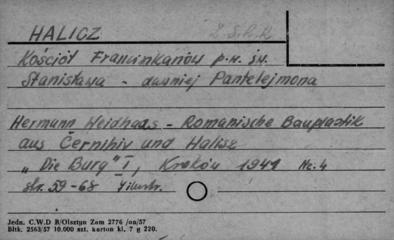 HALICZ
Z.S.R.R
Kościół Franciszkanów p.w. św.
Stanisława - dawniej Pantelejmona
Hermann Weidhaas - Romanische Bauplastik
aus Černihiv und Halisz
"Die Burg" I, Kraków 1941 Nr. 4
str. 59-68 7 ilustr.
Jedn. C.W.D R/Olsztyn Zam 2776 /on/57
Bltk. 2563/57 10.000 szt. karton kl. 7 g 220.